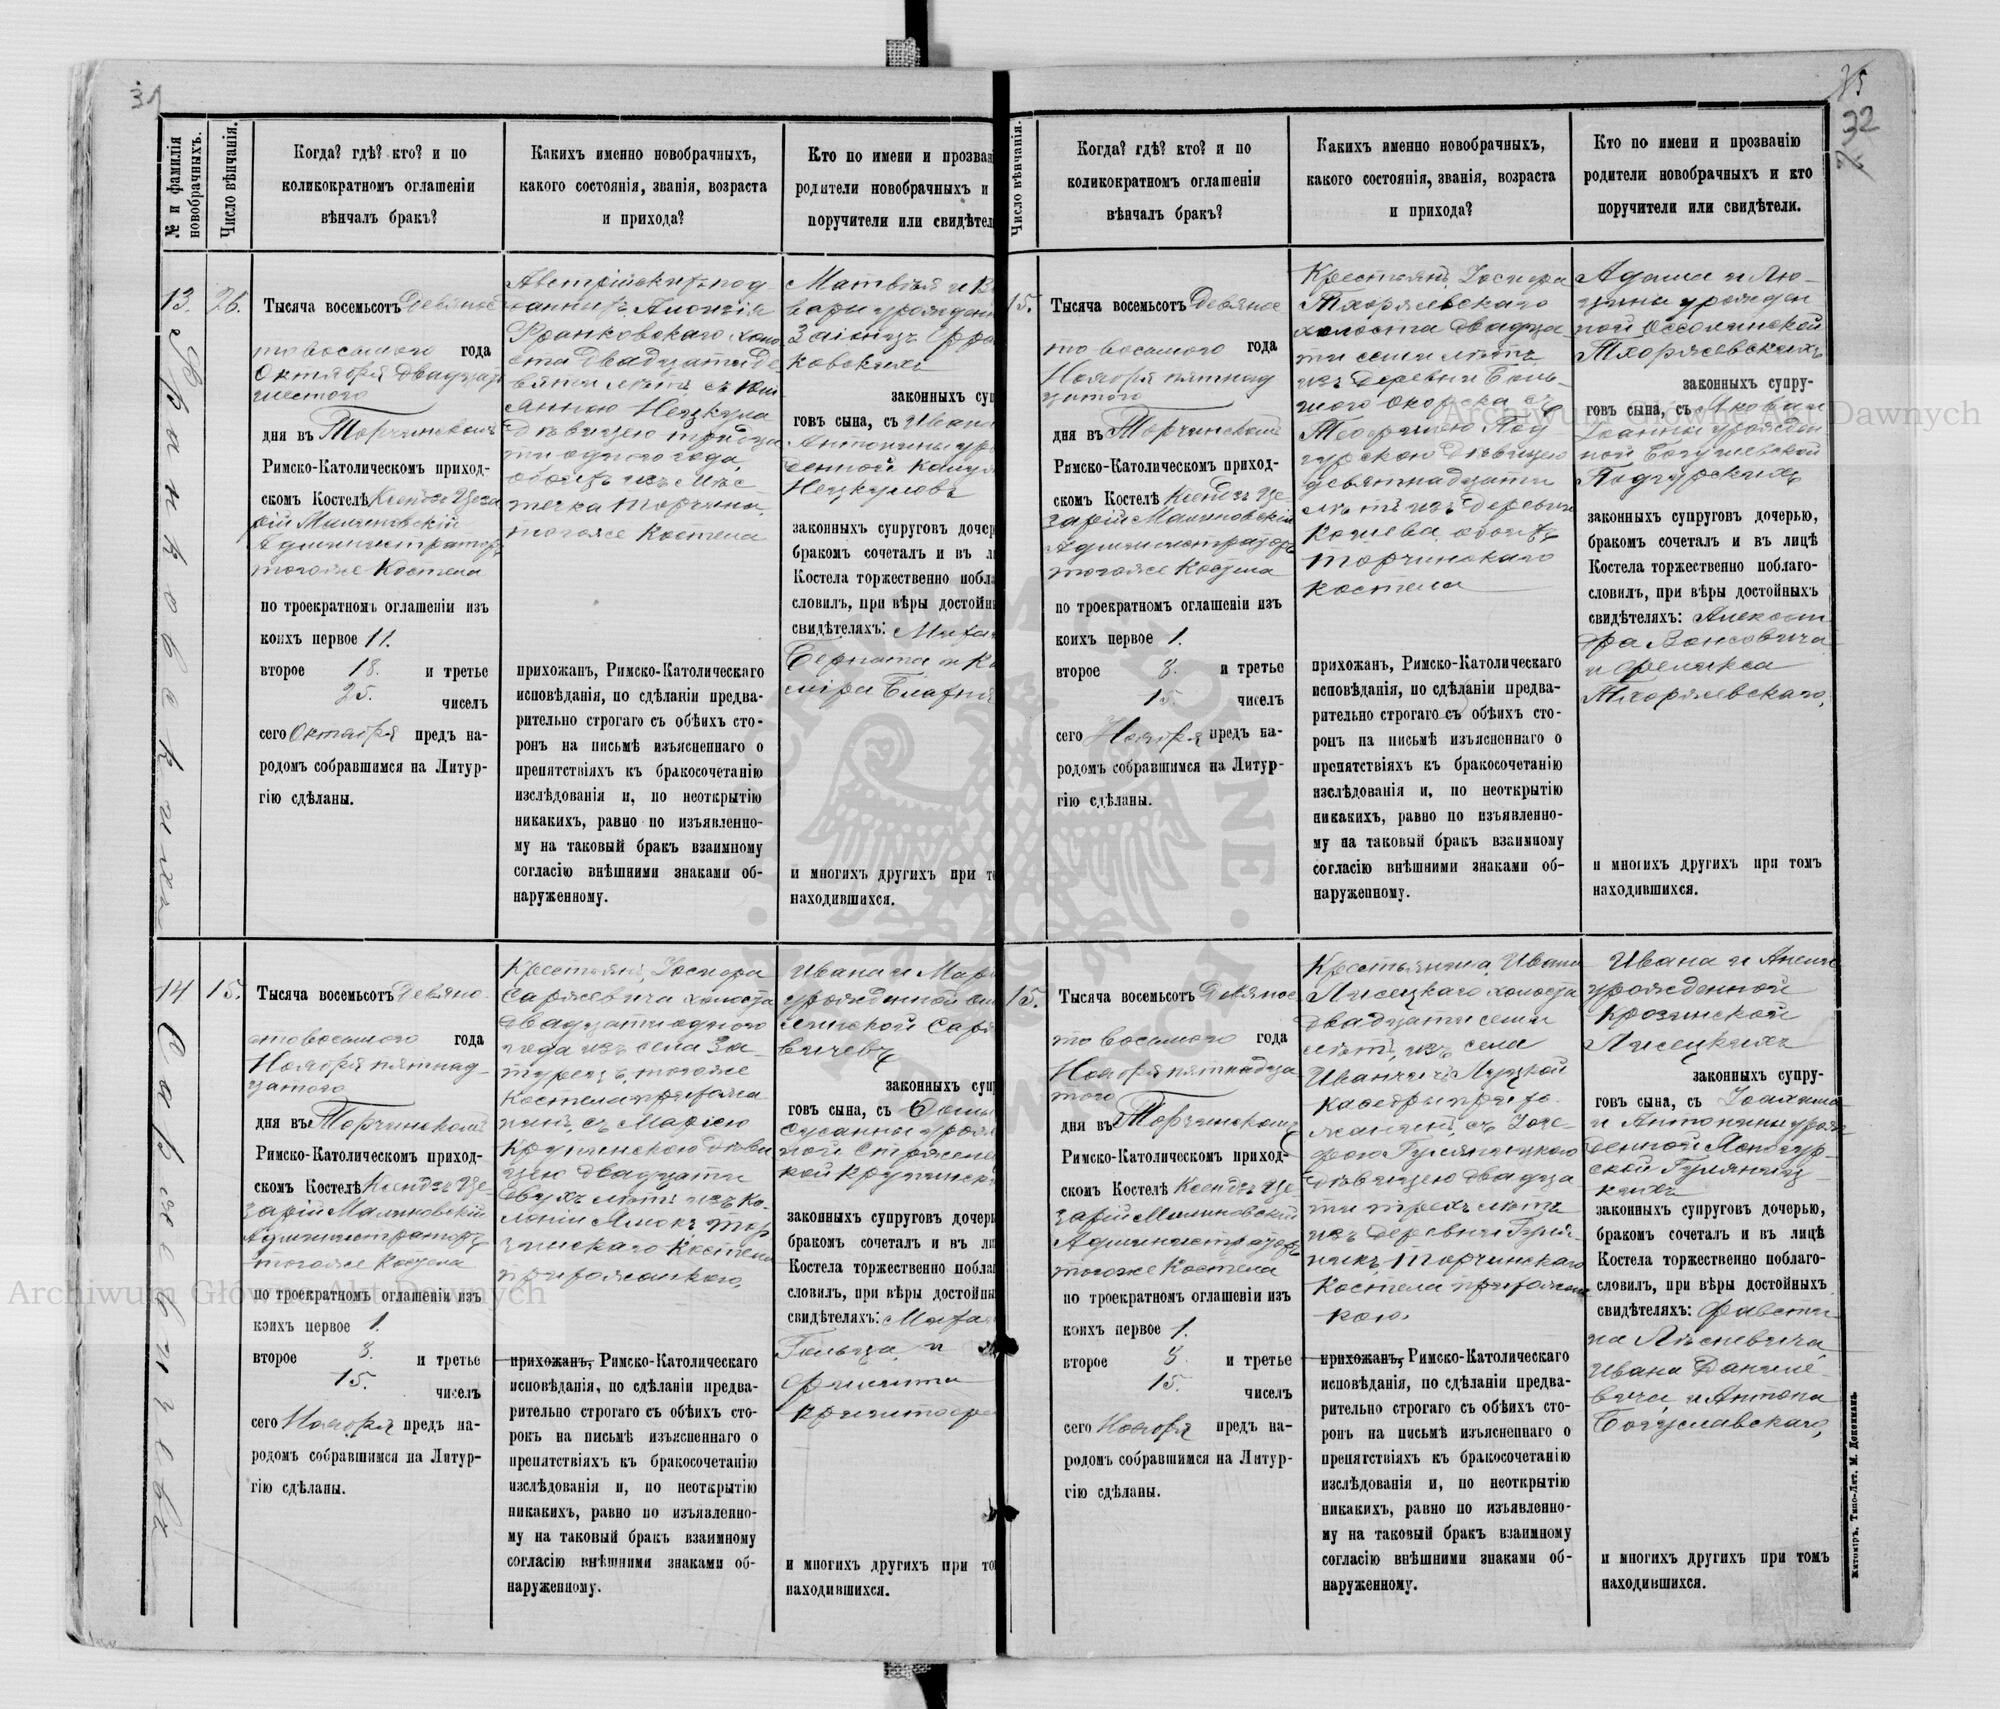 31
№ и фамилія новобрачныхъ.
Число вѣнчанія.
Когда? гдѣ? кто? и по
коликократномъ оглашеніи
вѣнчалъ бракъ?
Какихъ именно новобрачныхъ,
какого состоянія, званія, возраста
и прихода?
Кто по имени и прозван
родители новобрачныхъ и
поручители или свидѣтел
13.
Франковскихъ
26.
Тысяча восемьсотъ Девянос
то восьмого года
Октября двадцать
шестого
дня въ Торчинскомъ
Римско-Католическомъ приход-
скомъ Костелѣ Ксендзъ Цеза
рій Малиновскій
Администраторъ
тогоже Костела
по троекратномъ оглашеніи изъ
коихъ первое 11.
второе 18. и третье
25. чиселъ
сего Октября предъ на-
родомъ собравшимся на Литур-
гію сдѣланы.
Австрійскихъ под-
данныхъ, Алоизія
Франковскаго холо
ста двадцати де
вяти лѣтъ, съ
Анною Нецкула
дѣвицею тридца
ти одного года,
обоихъ изъ Мѣс
течка Торчина,
тогоже Костела
прихожанъ, Римско-Католическаго
исповѣданія, по сдѣланіи предва-
рительно строгаго съ обѣихъ сто-
ронъ на письмѣ изъясненнаго о
препятствіяхъ къ бракосочетанію
изслѣдованія и, по неоткрытію
никакихъ, равно по изъявленно-
му на таковый бракъ взаимному
согласію внѣшними знаками об-
наруженному.
Матвѣя и В
вары урожден
Заіонцъ Фра
ковскихъ
законныхъ суп
говъ сына, съ Ивана
Антонины уро
денной
Нецкуловъ
законныхъ супруговъ дочер
бракомъ сочеталъ и въ ли
Костела торжественно побла
словилъ, при вѣры достойны
свидѣтеляхъ: Миха
Берната и Ка
міра
и многихъ другихъ при то
находившихся.
14
Саржевичевъ
15.
Тысяча восемьсотъ Девяно-
стовосьмого года
Ноября пятнад-
цатого
дня въ Торчинскомъ
Римско-Католическомъ приход-
скомъ Костелѣ Ксендзъ Це-
зарій Малиновскій
Администраторъ
тогоже Костела
по троекратномъ оглашеніи изъ
коихъ первое 1.
второе 8. и третье
15. чиселъ
сего Ноября предъ на-
родомъ собравшимся на Литур-
гію сдѣланы.
Крестьянъ, Іосифа
Саржевича холоста
двадцатиодного
года изъ села За-
турецъ, тогоже
Костела прихожа
нинъ, съ Маріею
Крупинскою дѣви
цею двадцати
двухъ лѣтъ изъ Ко-
лоніи Ямокъ Тор
чинскаго Костела
прихожанкою,
прихожанъ, Римско-Католическаго
исповѣданія, по сдѣланіи предва-
рительно строгаго съ обѣихъ сто-
ронъ на письмѣ изъясненнаго о
препятствіяхъ къ бракосочетанію
изслѣдованія и, по неоткрытію
никакихъ, равно по изъявленно-
му на таковый бракъ взаимному
согласію внѣшними знаками об-
наруженному.
Ивана и Мар
урожденной
Сар
вичевъ
законныхъ суп
говъ сына, съ
Сусанны урож
ной
кой Крупинск
законныхъ супруговъ дочер
бракомъ сочеталъ и въ ли
Костела торжественно побла
словилъ, при вѣры достойны
свидѣтеляхъ: Миха
и
и многихъ другихъ при то
находившихся.
25
32
Число вѣнчанія.
Когда? гдѣ? кто? и по
коликократномъ оглашеніи
вѣнчалъ бракъ?
Какихъ именно новобрачныхъ,
какого состоянія, званія, возраста
и прихода?
Кто по имени и прозванію
родители новобрачныхъ и кто
поручители или свидѣтели.
15.
Тысяча восемьсотъ Девянос
то восьмого года
Ноября пятнад
цатого
дня въ Торчинскомъ
Римско-Католическомъ приход-
скомъ Костелѣ Ксендзъ Це-
зарій Малиновскій
Администраторъ
тогоже Костела
по троекратномъ оглашеніи изъ
коихъ первое 1.
второе 8. и третье
15. чиселъ
сего Ноября предъ на-
родомъ собравшимся на Литур-
гію сдѣланы.
Крестьянъ, Іосифа
Тхоржевскаго
холоста двадца
ти семи лѣтъ
изъ деревни Боль-
шого Окорска съ
Теофилею Под
гурскою дѣвицею
девятнадцати
лѣтъ изъ деревни
Кошева, обоихъ
Торчинскаго
Костела
прихожанъ, Римско-Католическаго
исповѣданія, по сдѣланіи предва-
рительно строгаго съ обѣихъ сто-
ронъ на письмѣ изъясненнаго о
препятствіяхъ къ бракосочетанію
изслѣдованія и, по неоткрытію
никакихъ, равно по изъявленно-
му на таковый бракъ взаимному
согласію внѣшними знаками об-
наруженному.
Адама и Лю-
цины урожден
ной Оссолинской
Тхоржевскихъ
законныхъ супру-
говъ сына, съ Якова и
Іоанны урожден
ной Богушевской
Подгурскихъ
законныхъ супруговъ дочерью,
бракомъ сочеталъ и въ лицѣ
Костела торжественно поблаго-
словилъ, при вѣры достойныхъ
свидѣтеляхъ: Александ
ра Вонсовича
и Феликса
Тхоржевскаго,
и многихъ другихъ при томъ
находившихся.
15.
Тысяча восемьсотъ Девянос
то восьмого года
Ноября пятнадца
того
дня въ Торчинскомъ
Римско-Католическомъ приход-
скомъ Костелѣ Ксендзъ Це-
зарій Малиновскій
Администраторъ
тогоже Костела
по троекратномъ оглашеніи изъ
коихъ первое 1.
второе 8. и третье
15. чиселъ
сего Ноября предъ на-
родомъ собравшимся на Литур-
гію сдѣланы.
Крестьянина, Ивана
Лисецкаго холоста
двадцати семи
лѣтъ, изъ села
Иванчицъ Луцкой
Каѳедры прихо-
жанинъ, съ Іозе-
фою Гуляницкою
дѣвицею двадца-
ти трехъ лѣтъ
изъ деревни
Торчинскаго
Костела прихожан
кою.
прихожанъ, Римско-Католическаго
исповѣданія, по сдѣланіи предва-
рительно строгаго съ обѣихъ сто-
ронъ на письмѣ изъясненнаго о
препятствіяхъ къ бракосочетанію
изслѣдованія и, по неоткрытію
никакихъ, равно по изъявленно-
му на таковый бракъ взаимному
согласію внѣшними знаками об-
наруженному.
Ивана и
урожденной
Крозинской
Лисецкихъ
законныхъ супру-
говъ сына, съ Іоахима
и Антонины урож
денной Ясногур-
ской Гуляниц
кихъ
законныхъ супруговъ дочерью,
бракомъ сочеталъ и въ лицѣ
Костела торжественно поблаго-
словилъ, при вѣры достойныхъ
свидѣтеляхъ: Фавсти
на Лѣсневича,
Ивана Даниле-
вича, и Антона
Богуславскаго,
и многихъ другихъ при томъ
находившихся.
Житоміръ, Типо-Лит. М. Дененмана
Archiwum Główne Akt Dawnych
Archiwum Główne Akt Dawnych
ARCHIWUM GŁÓWNE AKT DAWNYCH